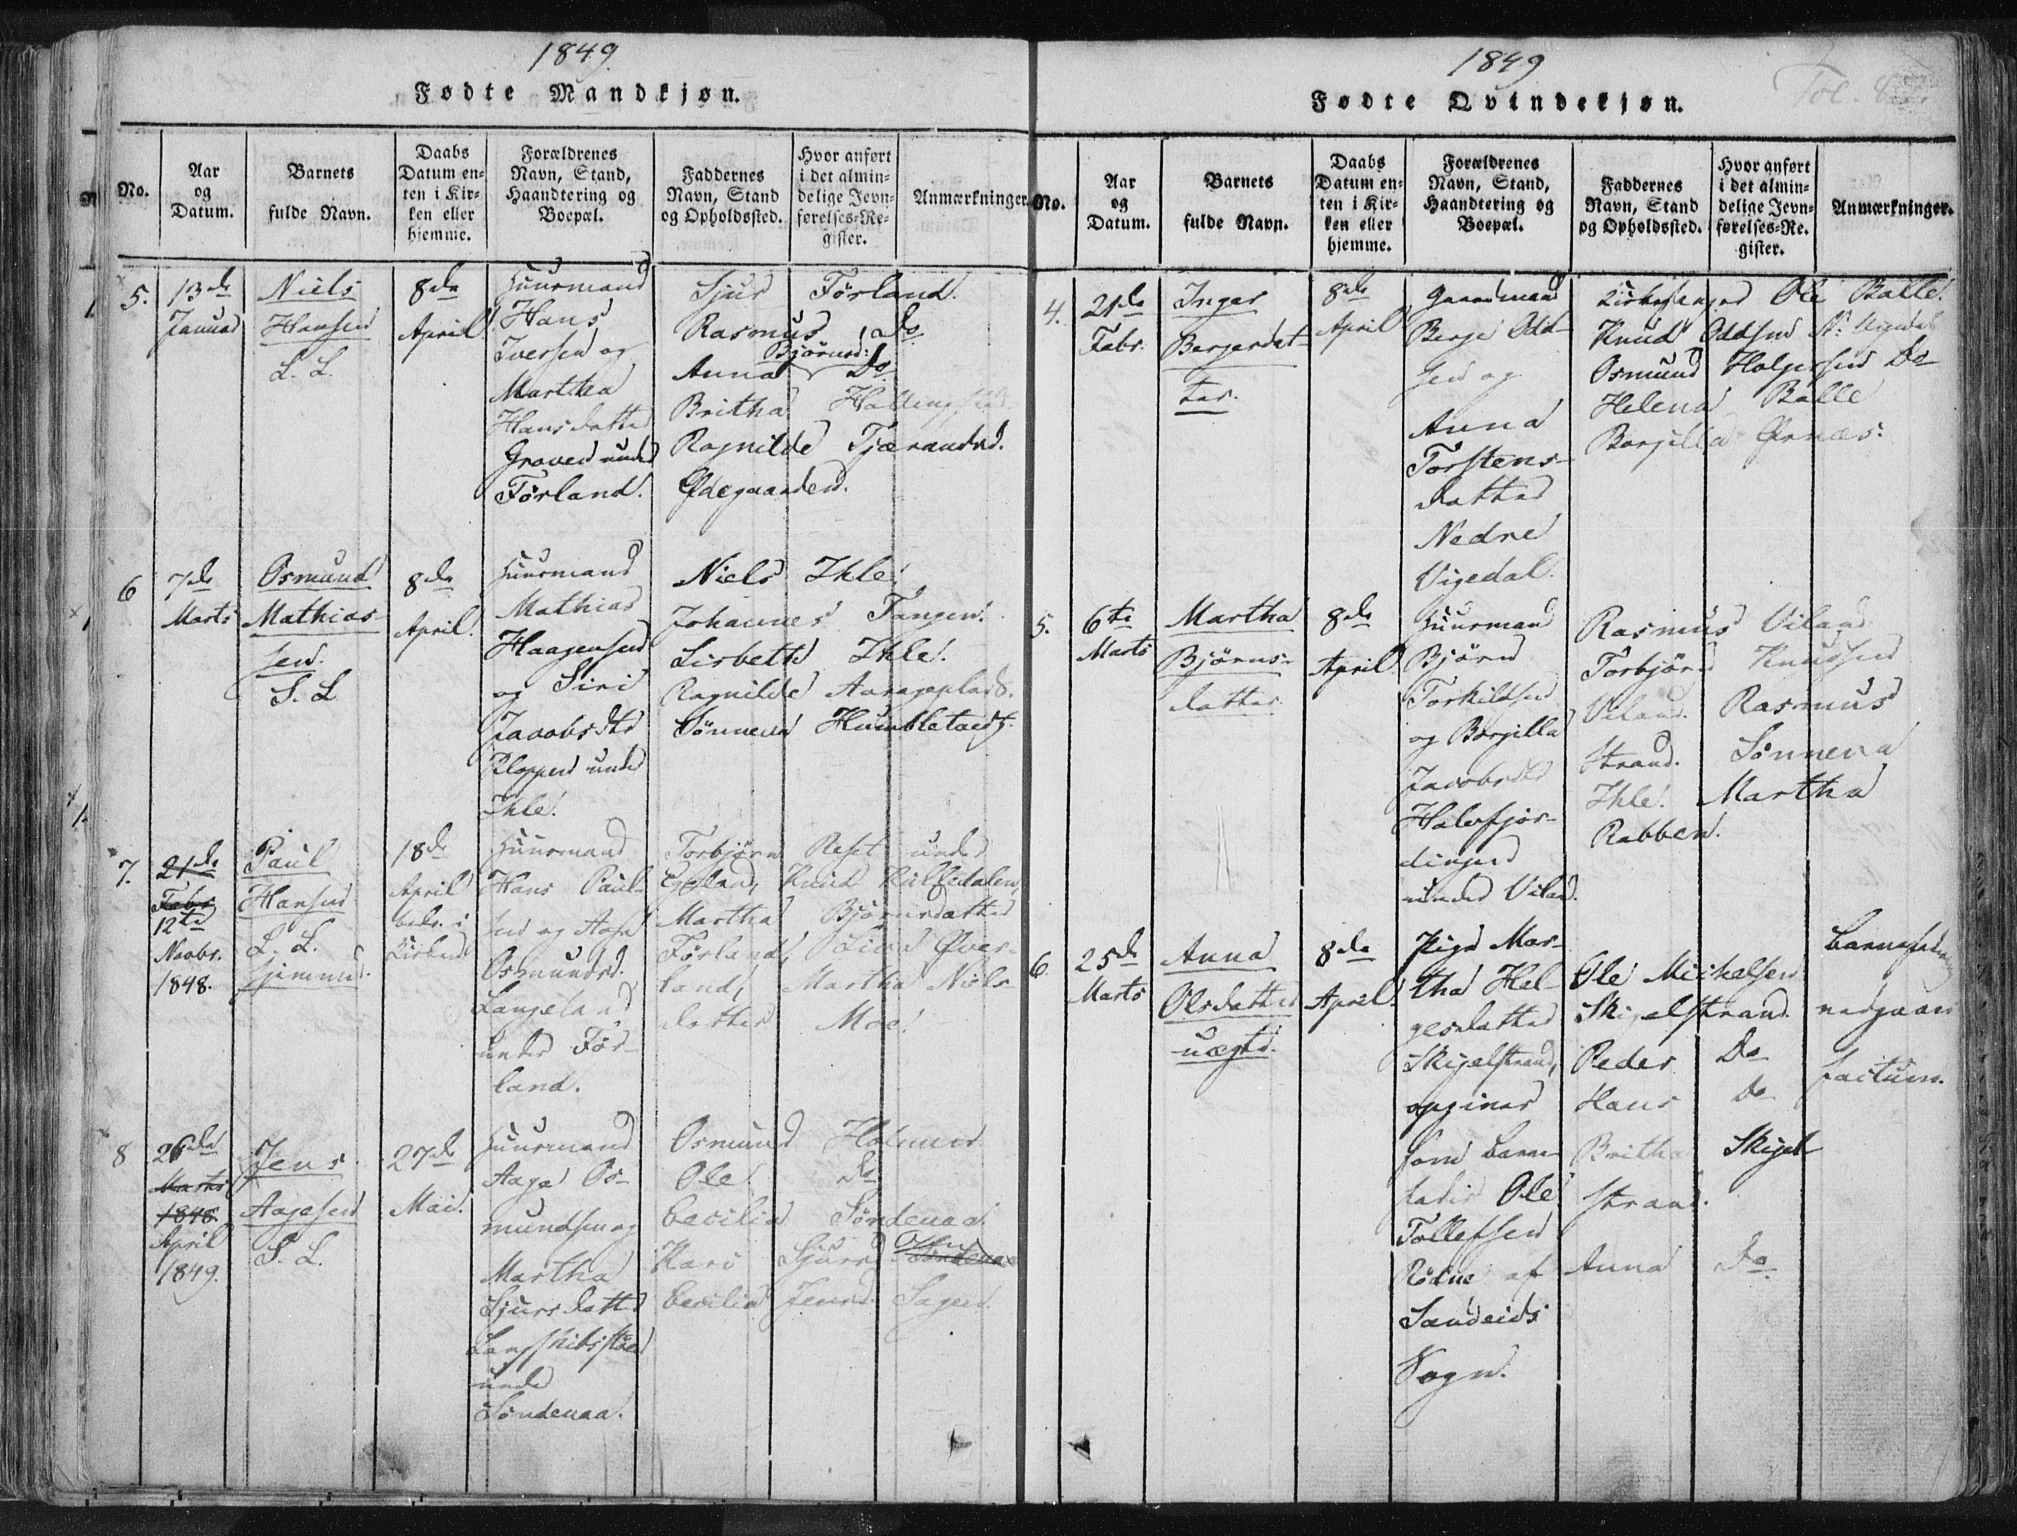 1849
Fødte Mandkjøn.
No.
Aar
og
Datum.
Barnets
fulde Navn.
Daabs
Datum en-
ten i Kir-
ken eller
hjemme.
Forældrenes
Navn, Stand,
Haandtering og
Boepæl.
Faddernes
Navn, Stand
og Opholdssted.
Hvor anført
i det almin-
delige Jevn-
førelses-Re-
gister.
Anmærkninger.
5.
13de
Januar
Niels
Hansen
L. L.
8de
April
Huusmand
Hans
Iversen og
Martha
Hansdatter
Graven under
Førland.
Sjur Førland.
Rasmus Do.
Anna Bjørnsd: Do
Britha
Ragnilde Tjæranden.
Ødegaarden.
6
7de
Marts
Osmund
Mathias-
sen.
S. L.
8de
April.
Huusmand
Mathias
Haagensen
og Siri
Jacobsdtr
Kloppen under
Ihle.
Niels Ihle.
Johannes Tangen.
Lisbeth Ihle.
Ragnilde Aarageplads.
Sønneva Humbletvedt.
7.
21de
Febr
12te
Novbr.
1848.
Paul
Hansen
L L.
hjemmed.
18de
April
bekr. i
Kirken
Huusmand
Hans Paul-
sen og Aasa
Osmundsd.
Langeland
under Før-
land.
Torbjørn under
Knud Killedalen,
Martha Bjørnsdatter
Førland, Øver-
land, Martha Niels-
datter Moe.
8
26de
Marts
1848.
April
1849.
Jens
Aagesen
S. L.
27de
Mai.
Huusmand
Aage Os-
mundsen og
Martha
Sjursdatter
Langskibsstøe
under
Søndenaa.
Osmund Holmen
Ole Do
Cecilia Søndenaa.
Kari Sjursd Søndenaa
Cecilia Jensd. Sagen.
1849
Fødte Qvindekjøn.
Fol.
No.
Aar
og
Datum.
Barnets
fulde Navn.
Daabs
Datum en-
ten i Kir-
ken eller
hjemme.
Forældrenes
Navn, Stand,
Haandtering og
Boepæl.
Faddernes
Navn, Stand
og Opholdssted.
Hvor anført
i det almin-
delige Jevn-
førelses-Re-
gister.
Anmærkninger.
4.
21de
Febr.
Inger
Bergesdat-
ter.
8de
April
Gaardmand
Berge Odd-
sen og
Anna
Torstens-
datter
Nedre
Vigedal.
Kirkesanger Ole Balle.
Knud Oddsen N. Vigedal
Osmund Holgersen Do
Helena Balle
Borgilla Ørnæs.
5.
6te
Marts
Martha
Bjørns-
datter
8de
April
Huusmand
Bjørn
Torkildsen
og Borgilla
Jacobsdtr
Halvfjor-
dingen
under Viland.
Rasmus Viland
Torbjørn Knudsen
Viland. Rasmus
Strand. Sønneva
Ihle. Martha
Rabben.
6.
25de
Marts
Anna
Olsdatter
uægte.
8de
April
Pige Mar-
tha Hel-
gesdatter
Skigelstrand,
opgiver
som barne-
fader Ole
Tollefsen
Rødne af
Sandeids
Sogn.
Ole Mickelsen
Skigelstrand.
Peder Do
Hans Do
Britha Skigel-
strand.
Anna Do.
barnefader
nedgaaer
factum.